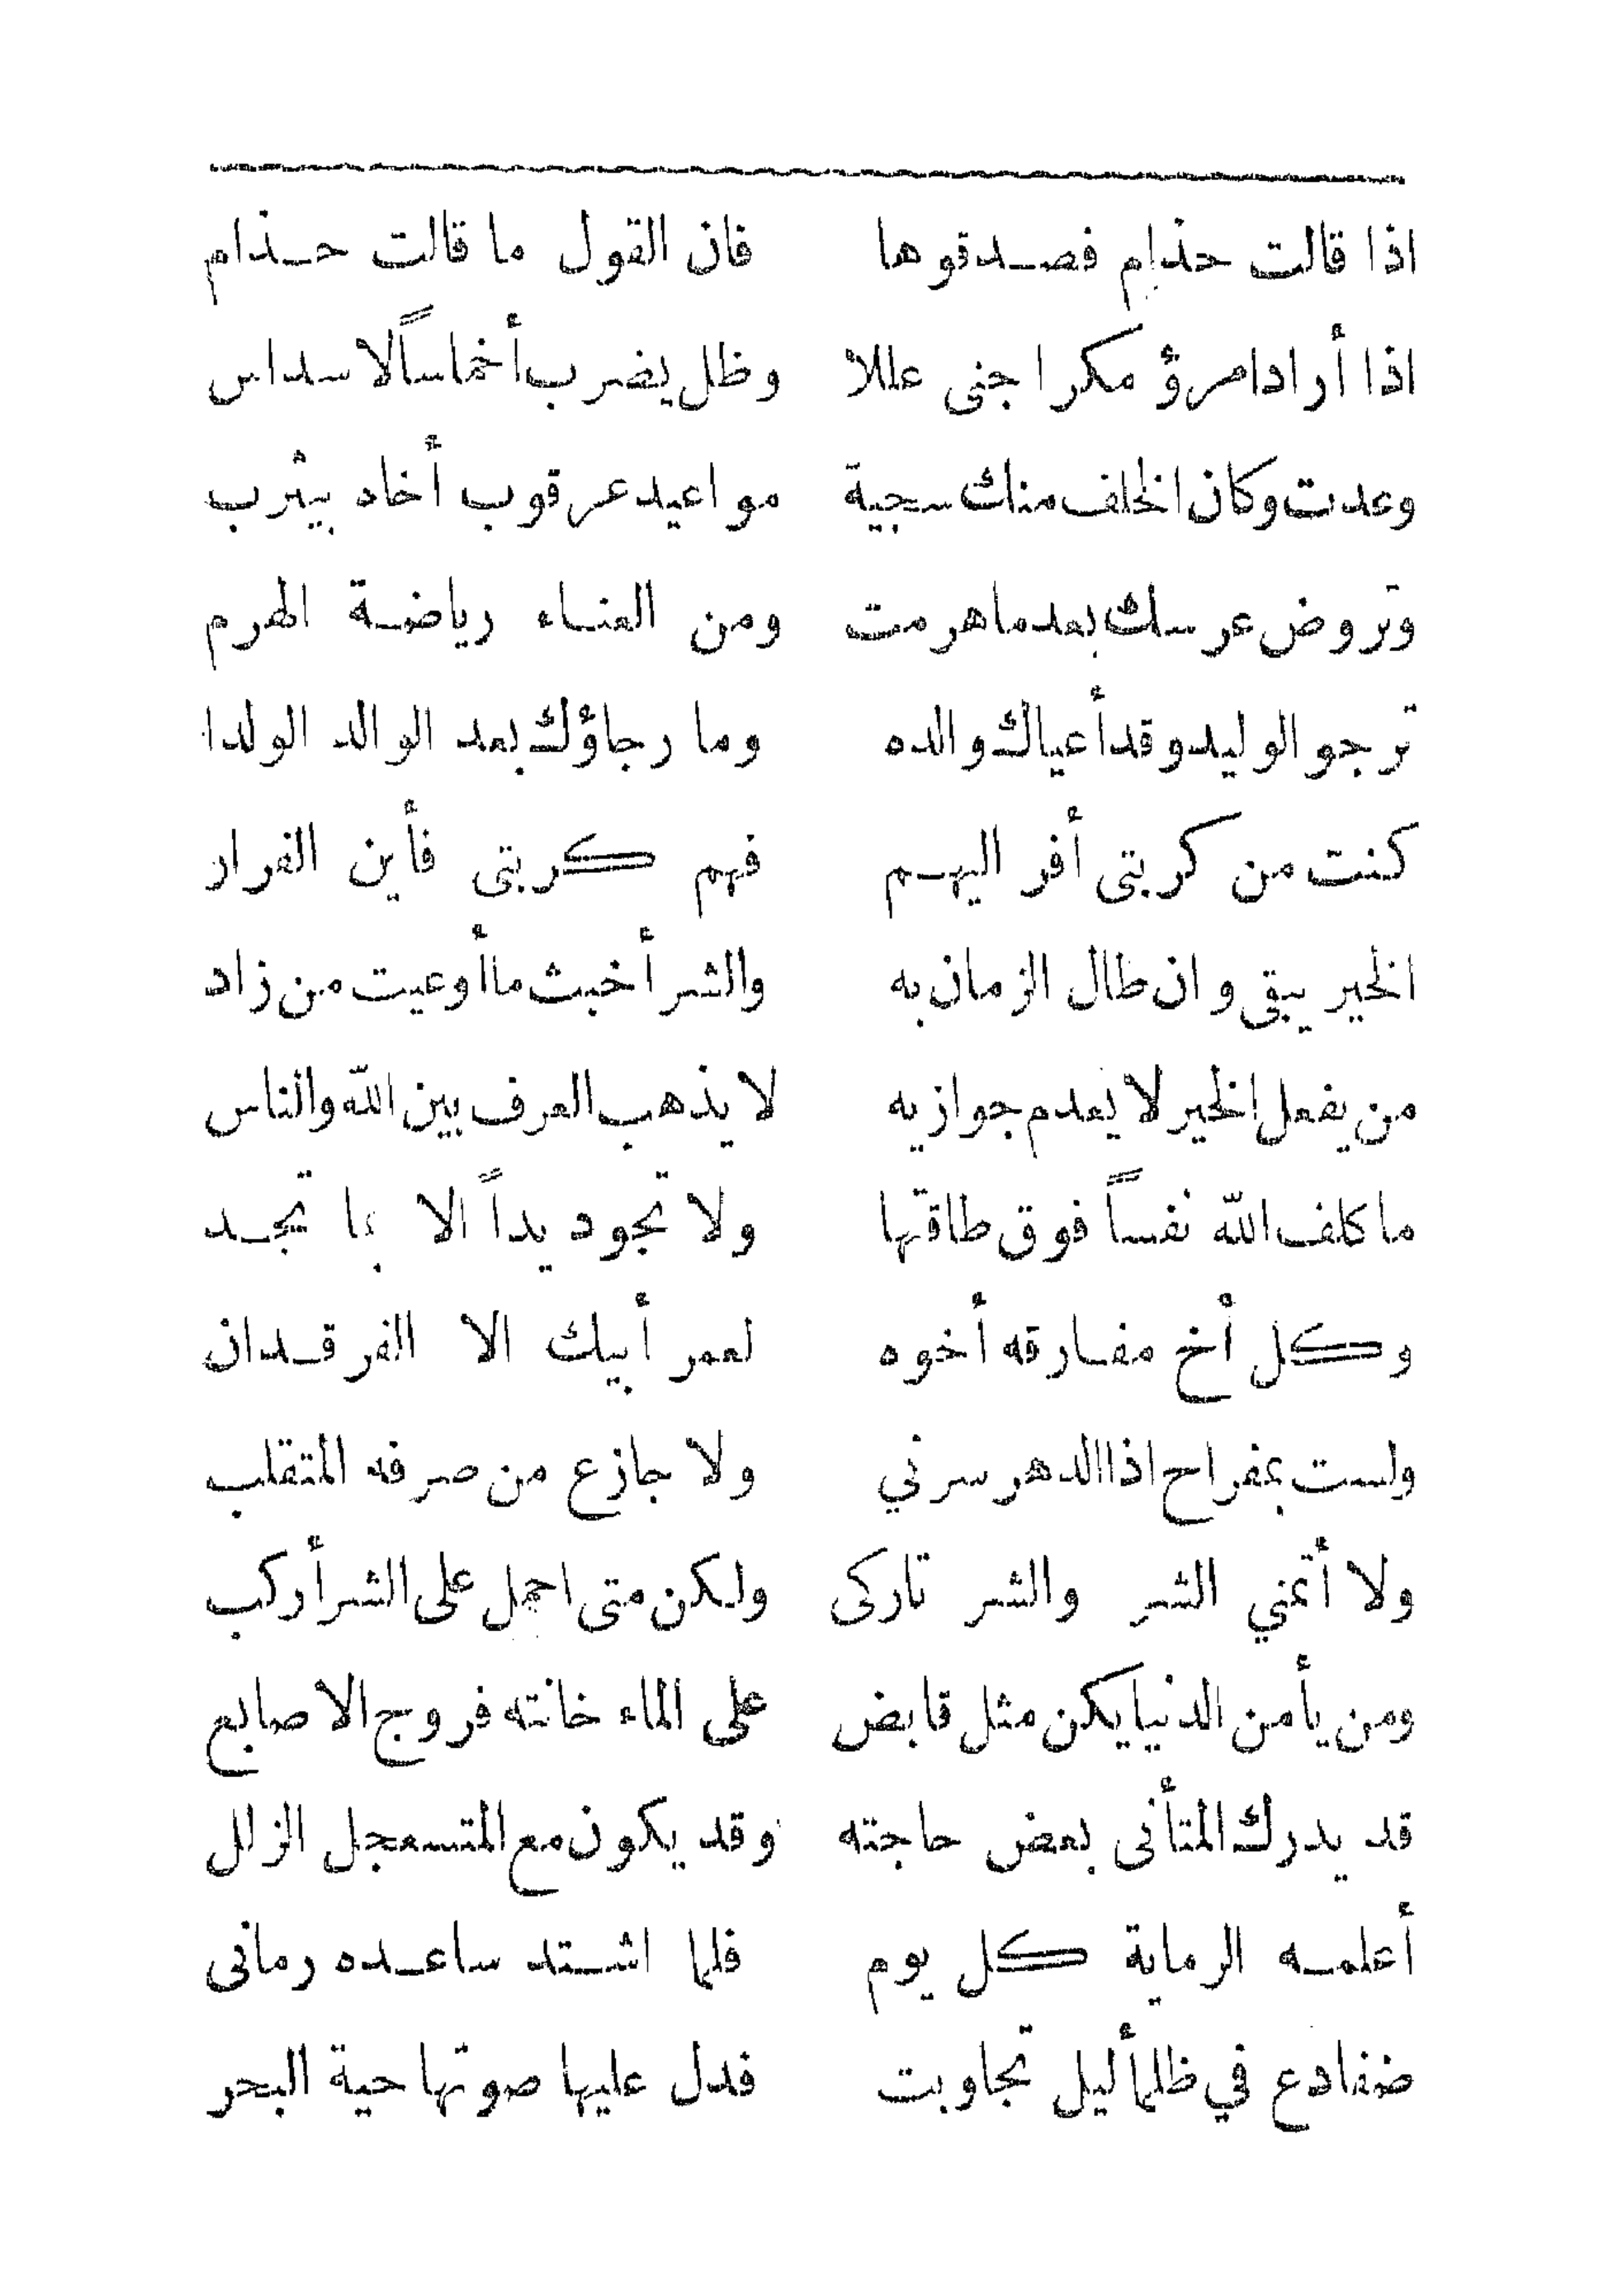 اذا قالت حذام فصدقوها فان القول ما قالت حذام
اذا أراد امرؤ مكرا جنى عللا وظل يضرب أخماساً لاسداس
وعدت وكان الخلف منك سجية مواعيد عرقوب أخاه بيثرب
وتروض عرسك بعد ما هرمت ومن العناء رياضة الهرم
ترجو الوليد وقد أعياك والده وما رجاؤك بعد الوالد الولدا
كنت من كربتى أفر اليهم فهم كربتى فأين الفرار
الخير يبقى وان طال الزمان به والشر أخبث ما أوعيت من زاد
من يفعل الخير لا يعدم جوازيه لا يذهب العرف بين الله والناس
ما كلف الله نفساً فوق طاقتها ولا تجود يداً الا بما تجد
وكل أخ مفارقه أخوه لعمر أبيك الا الفرقدان
ولست بمفراح اذا الدهر سرني ولا جازع من صرفه المتقلب
ولا أتمني الشر والشر تاركى ولكن متى احمل على الشر أركب
ومن يأمن الدنيا يكن مثل قابض على الماء خانته فروج الاصابع
قد يدرك المتأنى بعض حاجته وقد يكون مع المتسعجل الزلل
أعلمه الرماية كل يوم فلما اشتد ساعده رمانى
ضفادع في ظلمأ ليل تجاوبت فدل عليها صوتها حية البحر